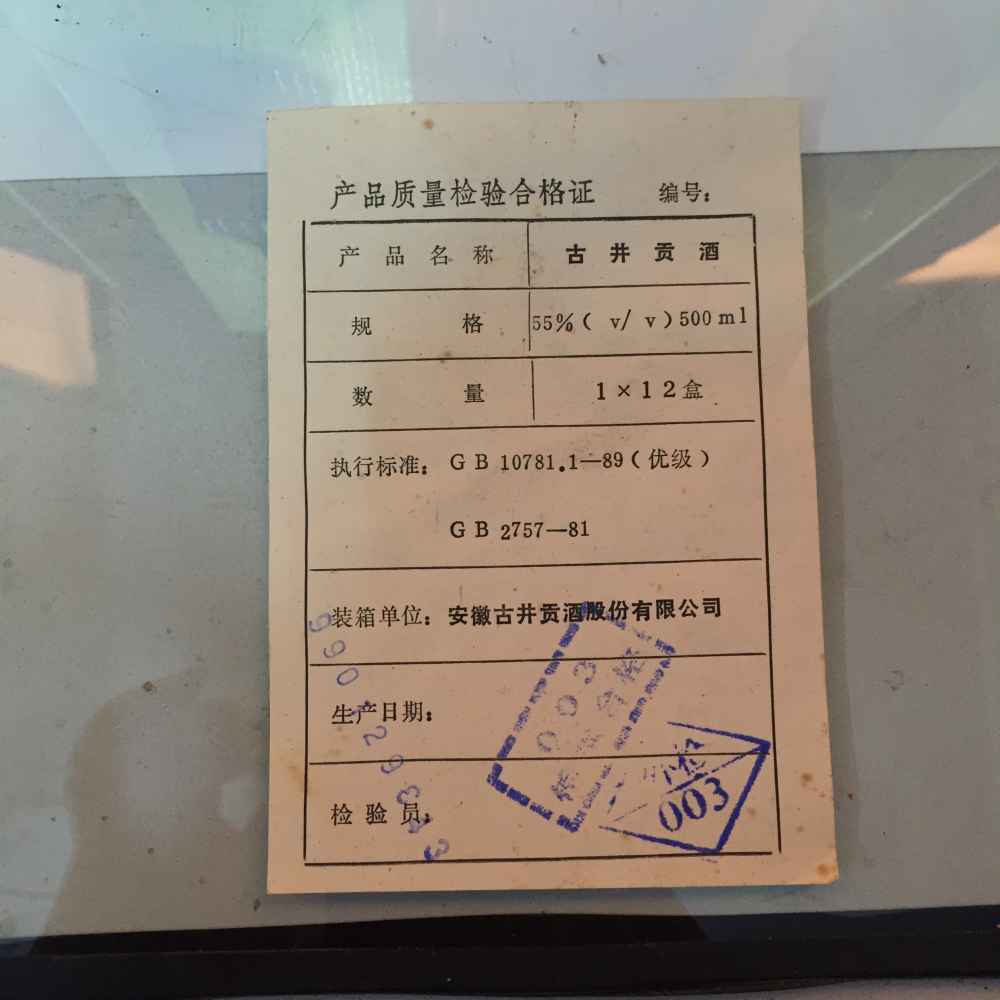 产品质量检验合格证 编号：
产品名称 古井贡酒
规格 55%( v/ v)500ml
数量 1×12盒
执行标准：GB 10781.1—89(优级)
GB 2757—81
装箱单位：安徽古井贡酒股份有限公司
生产日期：
检验员：
003
003